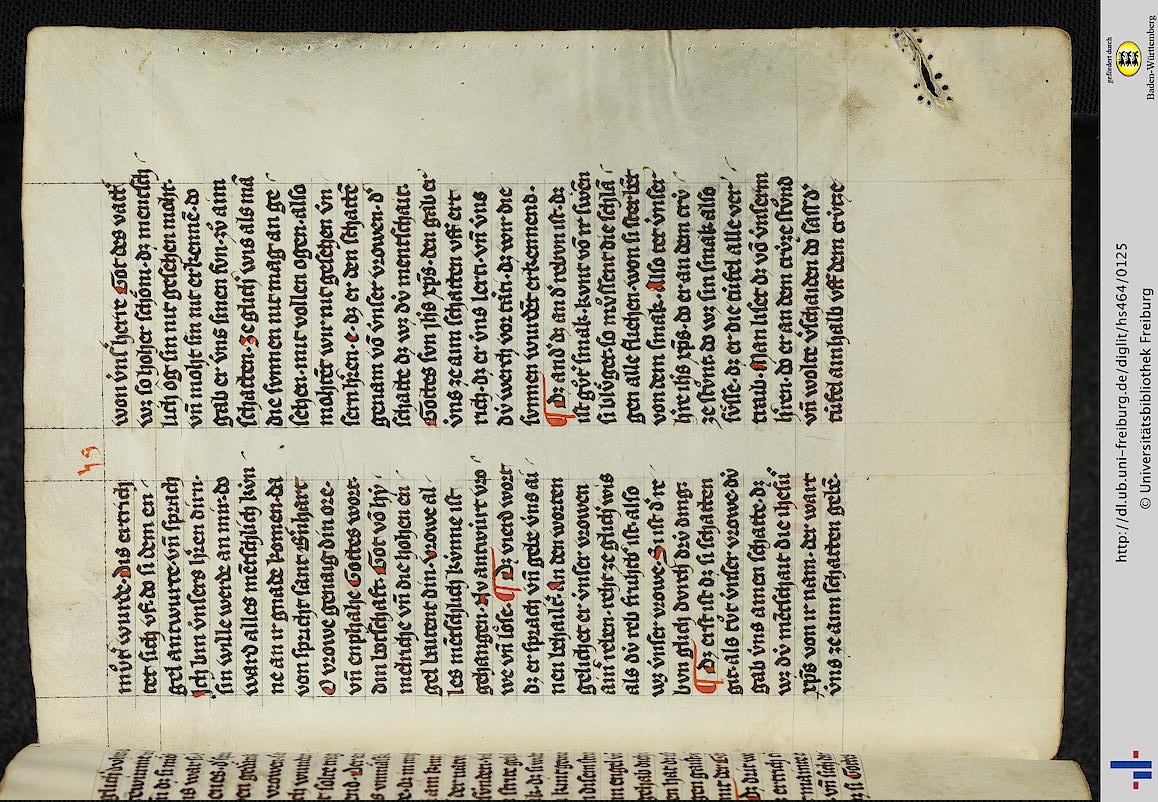 49
mv́t wurde· das ertrich
tet sich vf· do si dem en
gel antwurte· vn̄ sprach
Ich bin vnsers h'ren dirn·
sin wille werde an mir· do
ward alles mēschlich kvn
ne an ir gnade komen· da
von spricht sant B'nhart
O vrowe genaig din ore·
vn̄ enphahe Gottes wort·
din botschaft· Got vō hy
melriche vn̄ die hohen en
gel lutent din· vrowe al
les mēschlich kvnne ist
gehangen· Zv antwúrt vro
we vn̄ löse· ¶ Dz vierd wort
dz er sprach vn̄ gebe vns ai
nen behailt· An den worten
gelichet er vnser vrowen
aim̄ reben· reht ze glich wis
als dv́ reb fruhtb' ist· also
wz vnser vrowe· Si ist d' re
bvn glich dvrch drv́ ding·
¶ Dz erst ist dz si schatten
git· als tv̊t vnser vrowe· dv́
gab vns ainen schatte· dz
wz dv́ mēschait die ihesu
xp̄s von ir nam· der wart
vns ze aim schatten gebē·
won vns' herre Got des vatt'
wz so hoher schöni· dz mensch
lich og sin nit gesehen moht·
vn̄ moht sin nit erkenne· do
gab er vns sinen svn· zv aim
schatten· Ze glich' wis als mā
die svnnen nit mag an ge
sehen· mit vollen ogen· also
mohtēt wir nit gesehen vn
sern h'ren· e· dz er den schatte
genam vō vnser vrowen· d'
schatte dz wz dv́ menschait·
Gottes svn jh̄s xp̄s· den gab er
vns ze aim schatten vff ert
rich· dz er vns lerti· vn̄ vns
dv́ werch vor tāti· dz wir die
svnnen wurder erkennend·
¶ Dz and' dz and' rebvn ist· dz
ist gv̊t' smak· kvnt vō ir swen
si blv̊get· so mv̊ssent die schlā
gen alle fliehen· won si sterbet
von dem smak· Also tet vnser
h're ih̄s xp̄s· do er an dem crv́
ze stv̊nt· do wz sin smak also
sv̊sse· dz er die túfel alle ver
traib· Man liset dz vō vnserm
h'ren· do er an dem crv́ze stv̊nd
vn̄ wolte v'schaiden do sass d'
túfel ainhalb vff dem crv́ze
http://dl.ub.uni-freiburg.de/diglit/hs464/0125
© Universitätsbibliothek Freiburg
gefördert durch
Baden-Württemberg